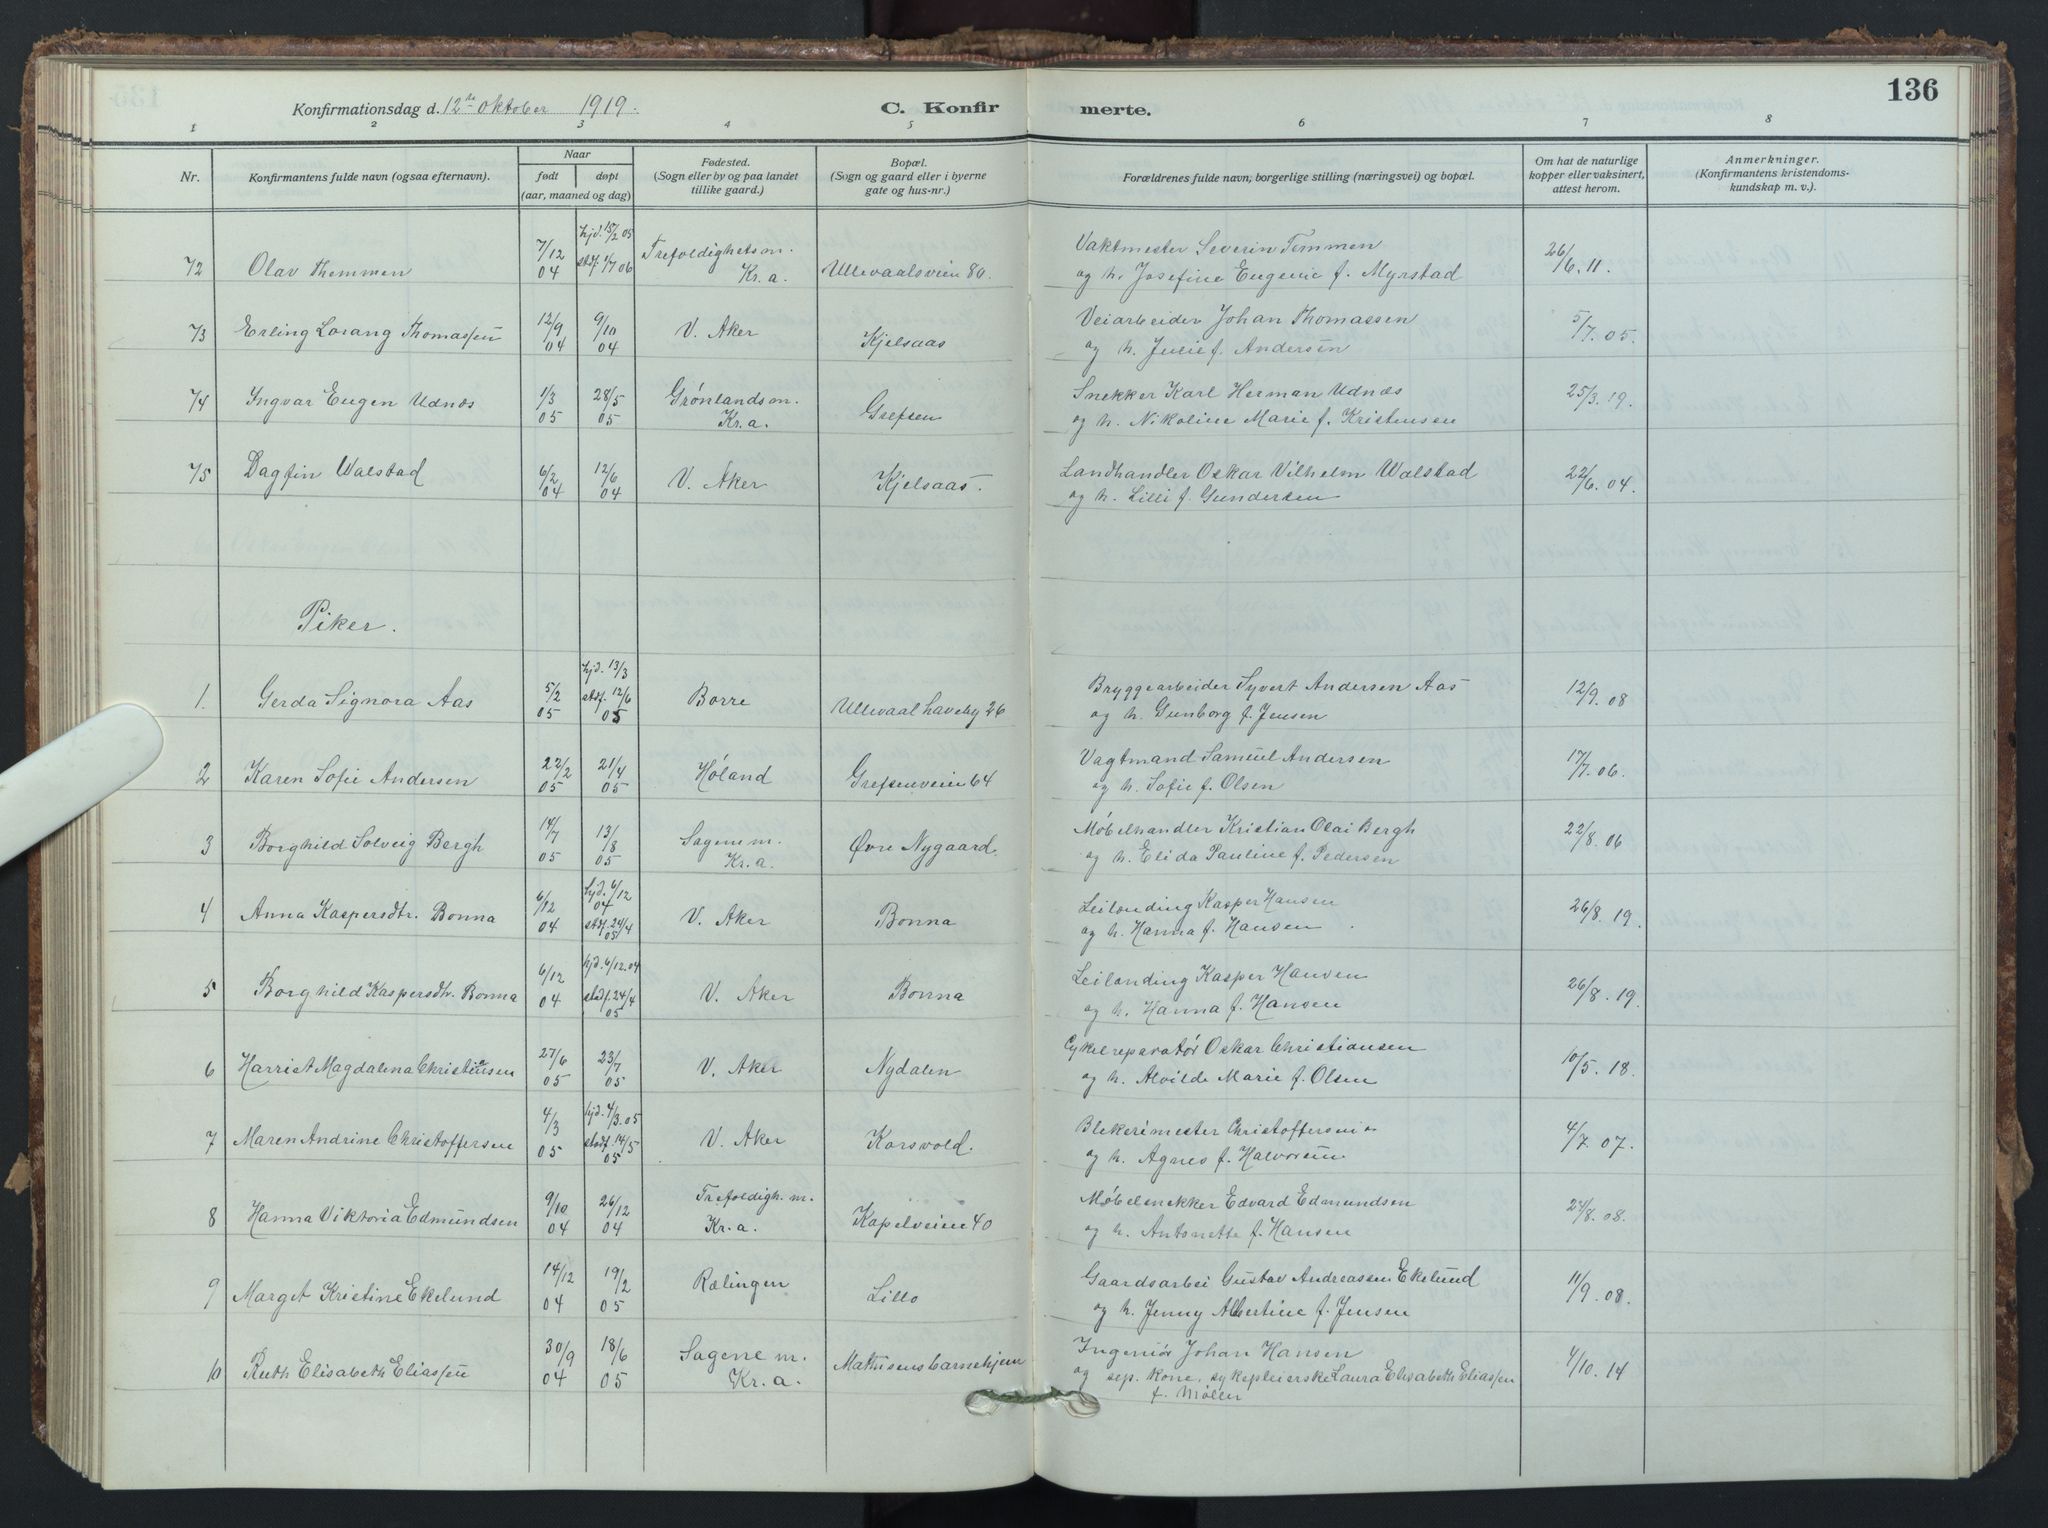 136
Konfirmationsdag d. 12te oktober 1919.
C. Konfirmerte.
1 2 3 4 5 6 7 8
Nr.
Konfirmantens fulde navn (ogsaa efternavn).
Naar
født
døpt
(aar, maaned og dag)
Fødested.
(Sogn eller by og paa landet
tillike gaard.)
Bopæl.
(Sogn og gaard eller i byerne
gate og hus-nr.)
Forældrenes fulde navn, borgerlige stilling (næringsvei) og bopæl.
Om hat de naturlige
kopper eller vaksinert,
attest herom.
Anmerkninger.
(Konfirmantens kristendoms-
kundskap m. v.).
72 Olav Themmen 7/12 04 hjd. 15/2 05 stdf. 1/7 06 Trefoldighetsm. Kr.a. Ullevaalsveien 80. Vaktmester Severin Temmen 26/6. 11.
og h. Josefine Eugenie f. Myrstad
73 Erling Lorang Thomassen 12/9 04 9/10 04 V. Aker Kjelsaas Veiarbeider Johan Thomassen 5/7. 05.
og h. Julie f. Andersen
74 Ingvar Eugen Udnæs 1/3 05 28/5 05 Grønlands m. Kr.a. Grefsen Snekker Karl Herman Udnæs 25/3. 19.
og h. Nikoline Marie f. Kristensen
75 Dagfin Walstad 6/2 04 12/6 04 V. Aker Kjelsaas. Landhandler Oskar Vilhelm Walstad 22/6. 04.
og h. Lilli f. Gundersen
Piker.
1. Gerda Signora Aas 5/2 05 hjd. 13/3 stdf. 12/6 05 Borre Ullevaal haveby 26 Bryggearbeider Syvert Andersen Aas 12/9. 08
og h. Gunborg f. Jensen
2 Karen Sofie Andersen 22/2 05 21/4 05 Høland Grefsenveien 64 Vagtmand Samuel Andersen 17/7. 06.
og h. Sofie f. Olsen
3 Borghild Solveig Bergh 14/7 05 13/8 05 Sagene m. Kr.a. Øvre Nygaard. Møbelhandler Kristian Olai Bergh 22/8. 06
og h. Elida Pauline f. Pedersen
4 Anna Kaspersdtr. Bonna 6/12 04 hjd. 6/12 04 stdf. 24/4 05 V. Aker Bonna Leilending Kasper Hansen 26/8. 19.
og h. Hanna f. Hansen
5 Borghild Kaspersdtr. Bonna 6/12 04 hjd. 6/12. 04 stadf. 24/4 05 V. Aker Bonna Leilending Kasper Hansen 26/8. 19.
og h. Hanna f. Hansen
6 Harriet Magdalena Christiansen 27/6 05 23/7 05 V. Aker Nydalen Cykelreparatør Oskar Christiansen 10/5. 18.
og h. Alvilde Marie f. Olsen
7 Maren Andrine Christoffersen 4/3 05 hjd. 4/3. 05 stadf. 14/5 05 V. Aker Korsvold. Blekerimester Christoffersen 4/7. 07.
og h. Agnes f. Halvorsen
8 Hanna Viktoria Edmundsen 9/10 04 26/12 04 Trefoldigh. m. Kr.a. Kapelveien 40 Møbelsnekker Edvard Edmundsen 24/8. 08.
og h. Antonette f. Hansen
9 Marget Kristine Ekelund 14/12 04 19/2 05 Rælingen Lillo Gaardsarbei Gustav Andreassen Ekelund 11/9. 08.
og h. Jenny Albertine f. Jensen
10 Ruth Elisabeth Eliassen 30/9 04 18/6 05 Sagene m. Kr.a. Mathisens barnehjem Ingeniør Johan Hansen 4/10. 14
og sep. kone, sykepleierske Laura Elisabeth Eliassen
f. Møller